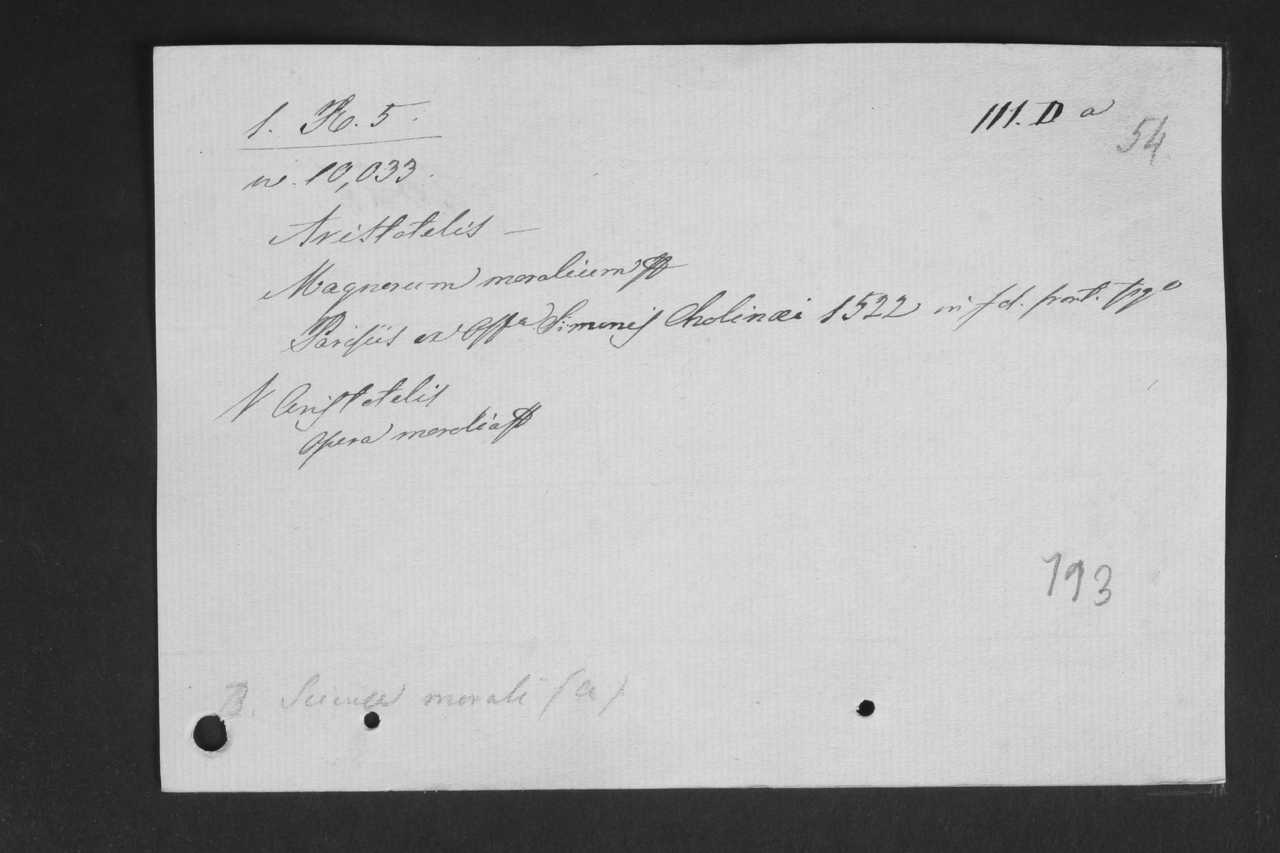 1. H. 5.
III. D a
54
n. 10,033.
Aristotelis —
Magnorum moralium
Parisiis ex Offa Simonis Cholinæi 1522 in fol. front.
V Aristotelis
Opera moralia
793
B. Scienze morali (a)